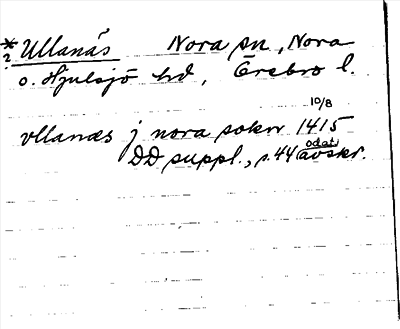 *
2 Ullanäs Nora sn, Nora
o. Hjulsjö hd, Örebro l.
10/8
vllanæs j nora sokn 1415
odat.
DD suppl., s. 44 avskr.